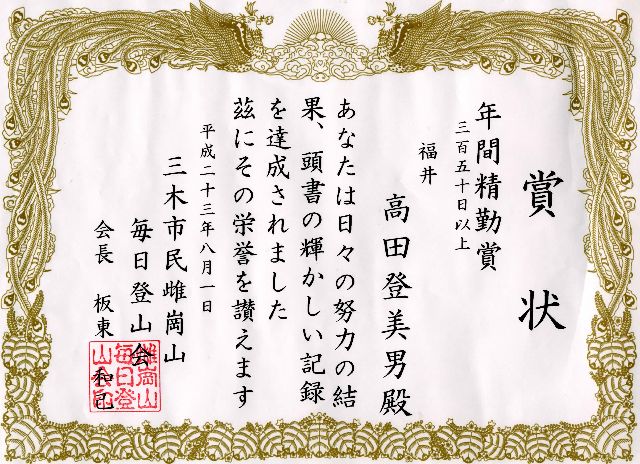 賞状
年間精勤賞
三百五十日以上
福井
高田登美男殿
あなたは日々の努力の結
果、頭書の輝かしい記録
を達成されました
茲にその栄誉を讃えます
平成二十三年八月一日
三木市民雌岡山
毎日登山会
会長 板東 和己
雌岡山
毎日登
山会印